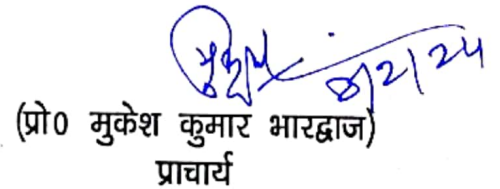 8/2/24
(प्रो0 मुकेश कुमार भारद्वाज)
प्राचार्य